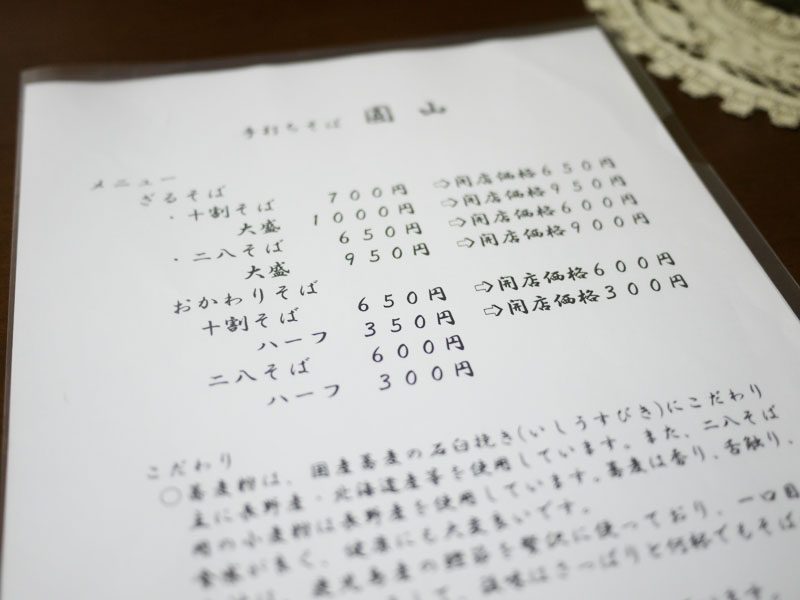 手打ちそば 園山
メニュー
ざるそば
・十割そば 700円 ⇨開店価格650円
大盛 1000円 ⇨開店価格950円
・二八そば 650円 ⇨開店価格600円
大盛 950円 ⇨開店価格900円
おかわりそば
十割そば 650円 ⇨開店価格600円
ハーフ 350円 ⇨開店価格300円
二八そば 600円
ハーフ 300円
こだわり
○蕎麦粉は、国産蕎麦の石臼挽き(いしうすびき)にこだわり
主に長野産・北海道産等を使用しています。また、二八そば
用の小麦粉は長野産を使用しています。蕎麦は香り、舌触り、
食感が良く、健康にも大変良いです。
鹿児島産の鰹節を贅沢に使っており、一口目
後味はさっぱりと何杯でもそば